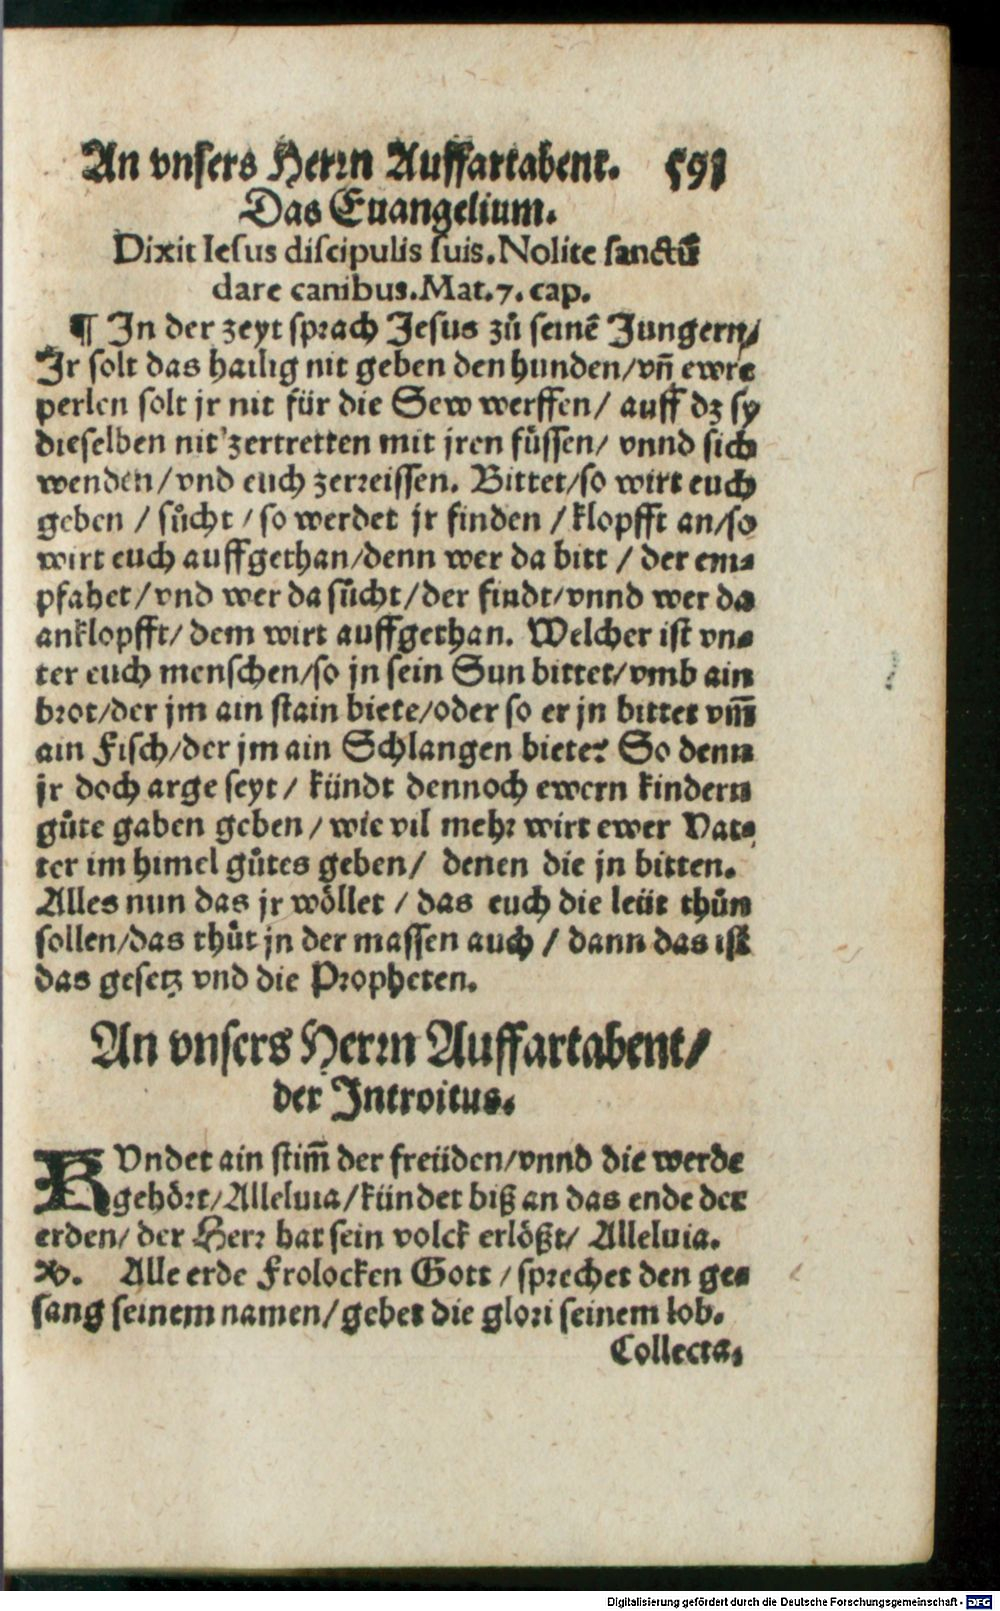 An vnsers Herrn Auffartabent. 591
Das Euangelium.
Dixit Iesus discipulis suis. Nolite sanctū
dare canibus. Mat. 7. cap.
¶ In der zeyt sprach Jesus zů seinē Jungern/
Ir solt das hailig nit geben den hunden/vn̄ ewre
perlen solt jr nit für die Sew werffen/ auff dz sy
dieselben nit zertretten mit jren füssen/ vnnd sich
wenden/vnd euch zerreissen. Bittet/so wirt euch
geben / sůcht / so werdet jr finden / klopfft an/so
wirt euch auffgethan/denn wer da bitt / der em-
pfahet/vnd wer da sůcht/der findt/vnnd wer da
anklopfft/ dem wirt auffgethan. Welcher ist vn-
ter euch menschen/so jn sein Sun bittet/vmb ain
brot/der jm ain stain biete/oder so er jn bittet vm̄
ain Fisch/der jm ain Schlangen biete? So denn
jr doch arge seyt / kündt dennoch ewern kindern
gůte gaben geben / wie vil mehr wirt ewer Vat-
ter im himel gůtes geben/ denen die jn bitten.
Alles nun das jr wöllet / das euch die leüt thůn
sollen/das thůt jn der massen auch / dann das ist
das gesetz vnd die Propheten.
An vnsers Herrn Auffartabent/
der Introitus.
KVndet ain stim̄ der freüden/vnnd die werde
gehört/Alleluia/kündet biß an das ende der
erden/ der Herr hat sein volck erlößt/ Alleluia.
℣. Alle erde Frolocken Gott / sprechet den ge-
sang seinem namen/gebet die glori seinem lob.
Collecta.
Digitalisierung gefördert durch die Deutsche Forschungsgemeinschaft - DFG